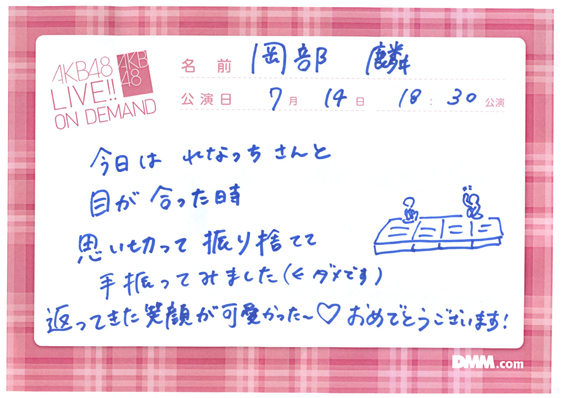 AKB48
LIVE!!
ON DEMAND
AKB
48
名前 岡部 麟
公演日 7月 14日 18:30公演
今日は れなっち さんと
目が 合った時
思い切って 振り捨てて
手振ってみました(←ダメです)
返ってきた笑顔が可愛かった〜♡ おめでとうございます!
DMM.com